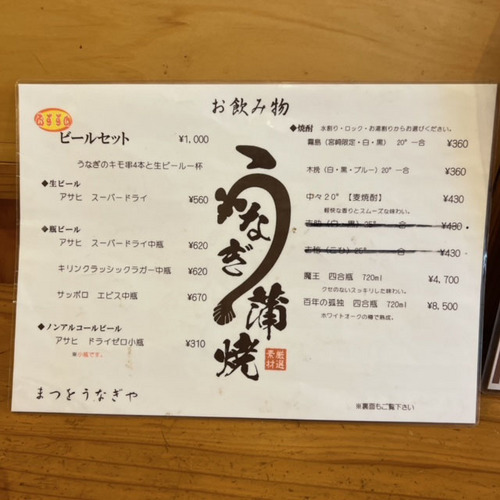 お飲み物
おすすめ
ビールセット ¥1,000
うなぎのキモ串4本と生ビール一杯
◆生ビール
アサヒ スーパードライ ¥560
◆瓶ビール
アサヒ スーパードライ中瓶 ¥620
キリンクラッシックラガー中瓶 ¥620
サッポロ エビス中瓶 ¥670
◆ノンアルコールビール
アサヒ ドライゼロ小瓶 ¥310
※小瓶です。
まつをうなぎや
うなぎ蒲焼
厳選素材
◆焼酎 水割り・ロック・お湯割りからお選びください。
霧島(宮崎限定・白・黒) 20°一合 ¥360
木挽(白・黒・ブルー) 20°一合 ¥360
中々20° 【麦焼酎】 ¥430
軽快な香りとスムーズな味わい。
(白・黒)25° 一合 ¥480
25° 一合 ¥430
魔王 四合瓶 720ml ¥4,700
クセのないスッキリした味わい。
百年の孤独 四合瓶 720ml ¥8,500
ホワイトオークの樽で熟成。
※裏面もご覧下さい